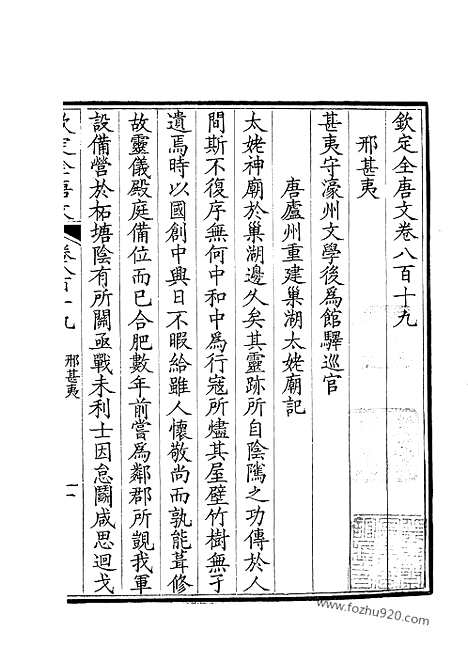 欽定全唐文卷八百十九
邢甚夷
甚夷守濠州文學後爲館驛巡官
唐廬州重建巢湖太姥廟記
太姥神廟於巢湖邊久矣其靈跡所自陰隲之功傳於人
間斯不復序無何中和中爲行寇所燼其屋壁竹樹無孑
遺焉時以國創中興日不暇給雖人懷敬尚而孰能葺修
故靈儀殿庭備位而已合肥數年前嘗爲鄰郡所覬我軍
設備營於柘塘陰有所關亟戰未利士因怠鬭咸思迴戈
欽定全唐文
卷八百十九
邢甚夷
一
www.fozhu920.com